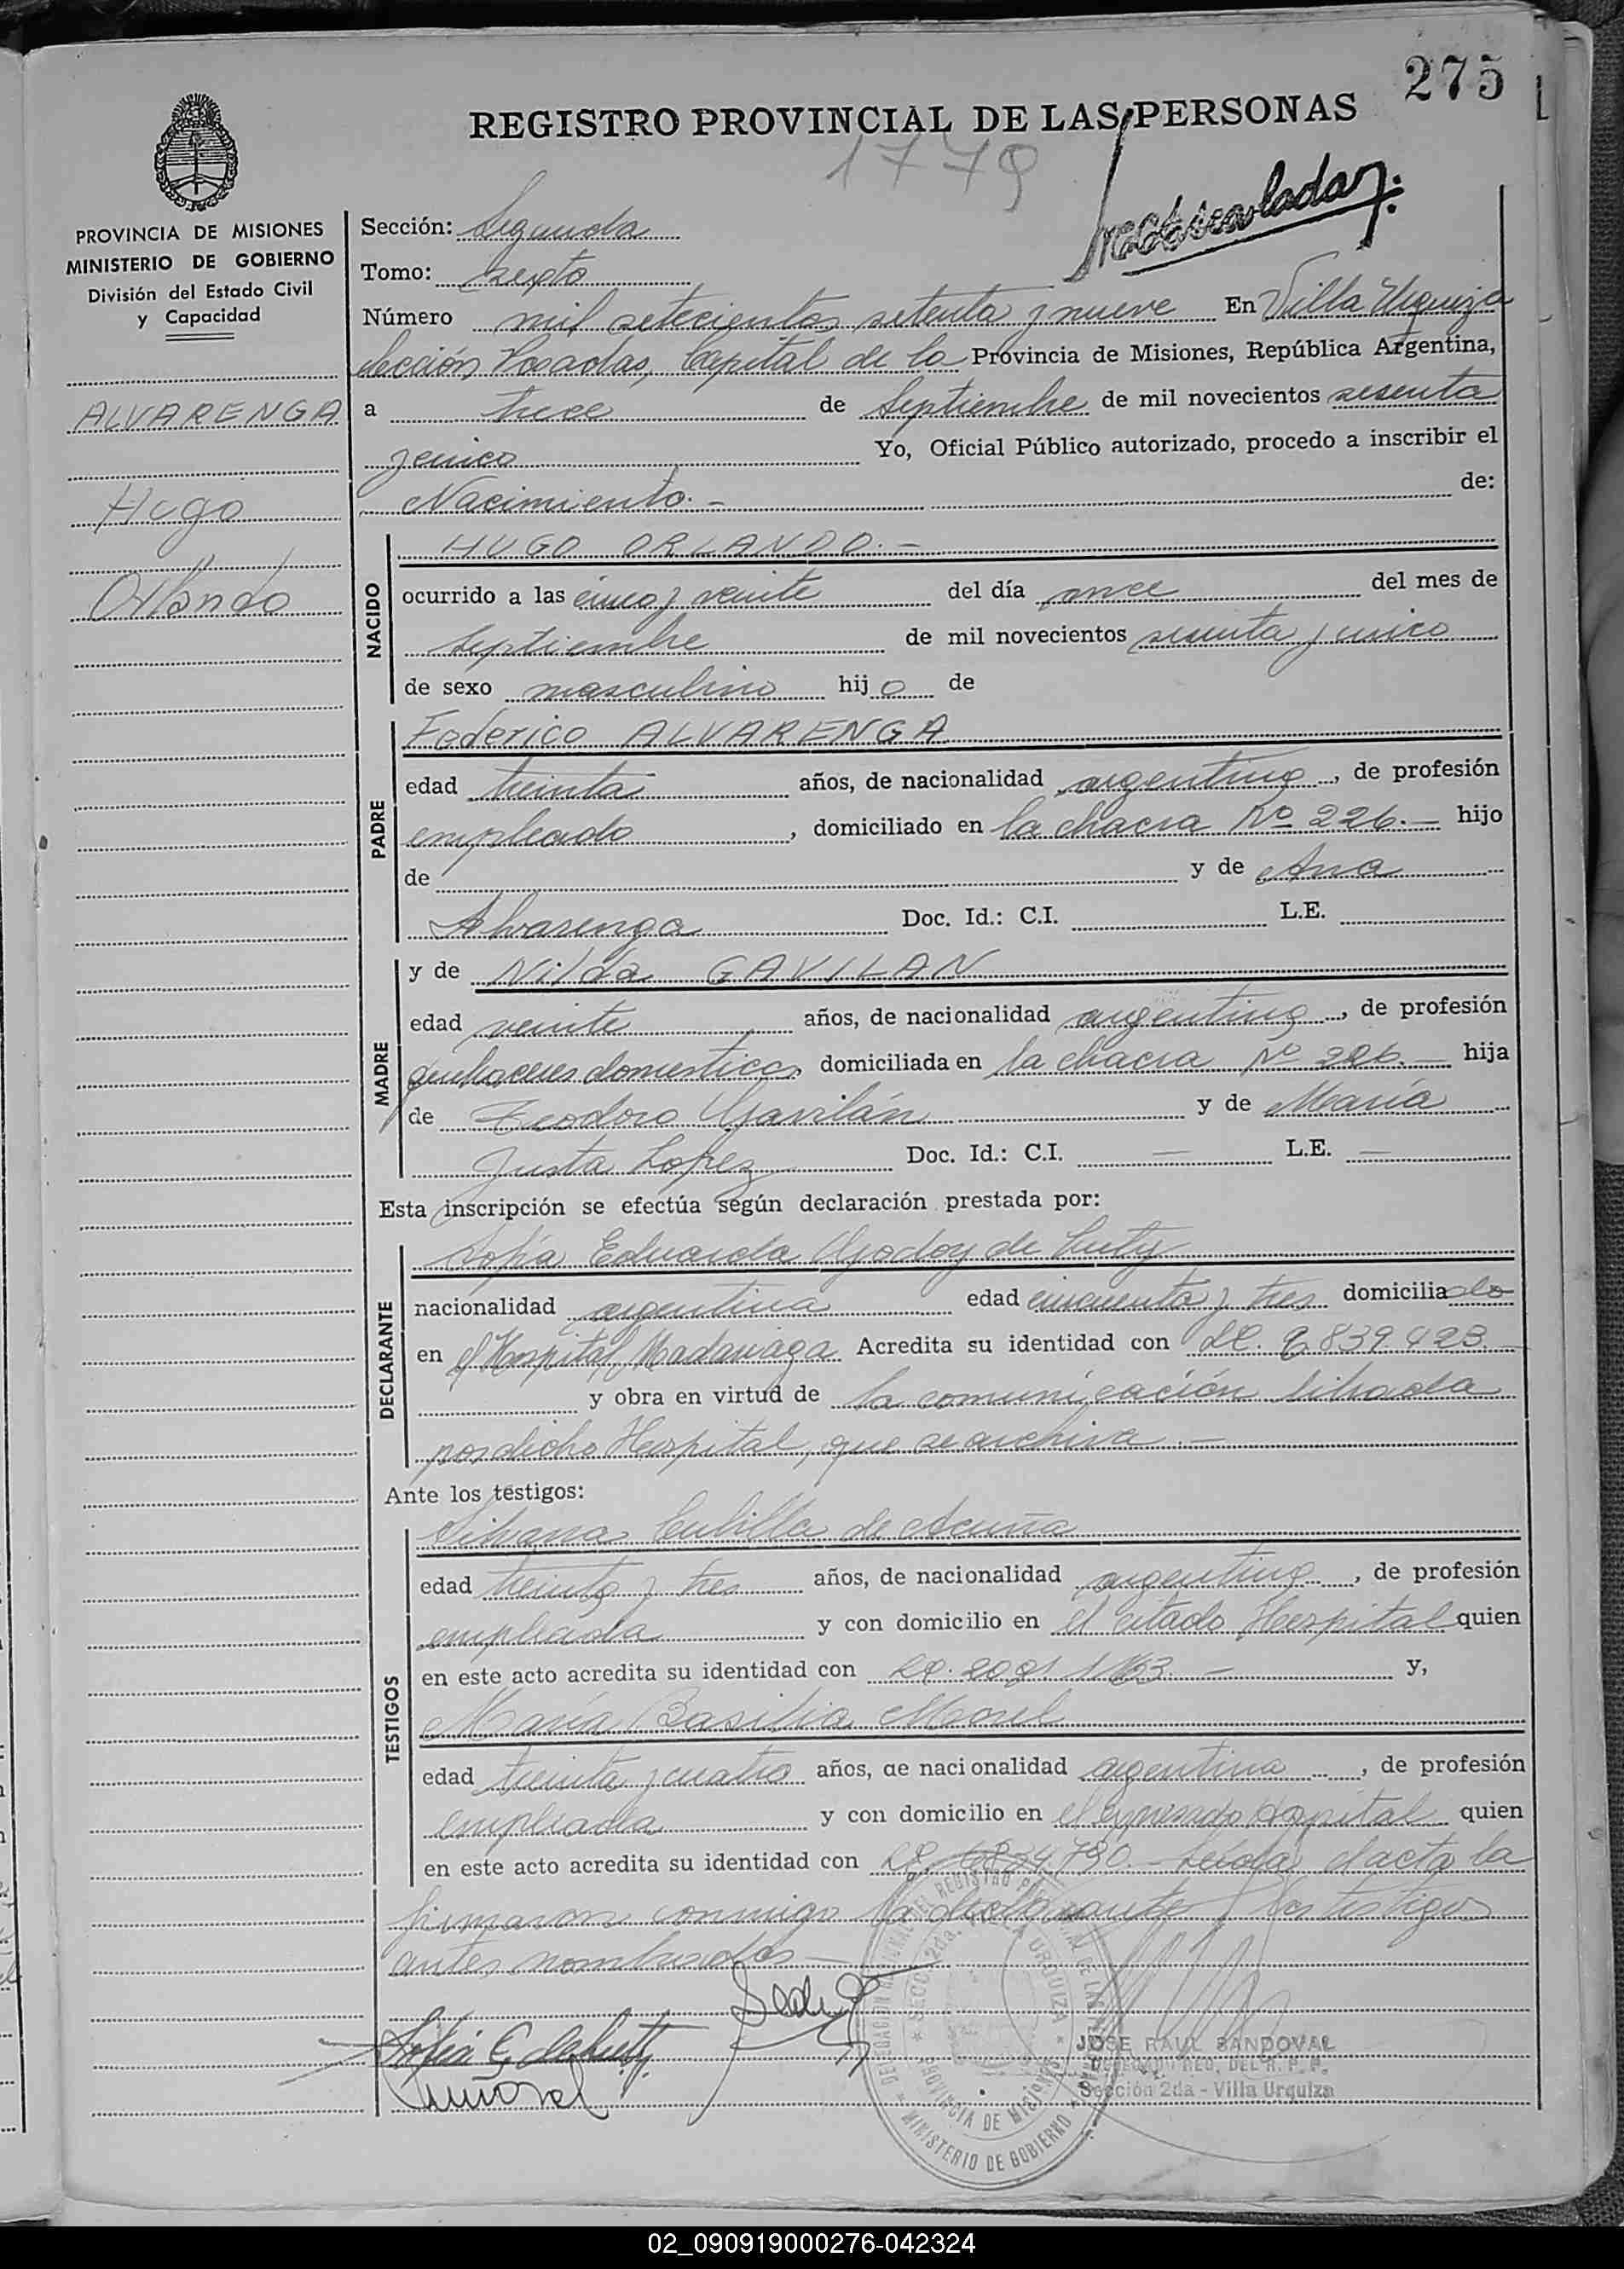 275
REGISTRO PROVINCIAL DE LAS PERSONAS
1779
Matriculado
PROVINCIA DE MISIONES
MINISTERIO DE GOBIERNO
División del Estado Civil
y Capacidad
ALVARENGA
Hugo
Orlando
Sección: Segunda
Tomo: sexto
Número mil setecientos setenta y nueve En Villa Urquiza
Sección Posadas, Capital de la Provincia de Misiones, República Argentina,
a trece de Septiembre de mil novecientos sesenta
y cinco Yo, Oficial Público autorizado, procedo a inscribir el
Nacimiento.- de:
NACIDO
HUGO ORLANDO.-
ocurrido a las cinco y veinte del día once del mes de
Septiembre de mil novecientos sesenta y cinco
de sexo masculino hijo de
PADRE
Federico ALVARENGA
edad treinta años, de nacionalidad argentina, de profesión
empleado, domiciliado en la chacra Nº 226.- hijo
de y de Ana
Alvarenga Doc. Id.: C.I. L.E.
MADRE
y de Nilda GAVILAN
edad veinte años, de nacionalidad argentina, de profesión
quehaceres domesticos domiciliada en la chacra Nº 226.- hija
de Teodoro Gavilán y de María
Justa Lopez Doc. Id.: C.I. — L.E. —
Esta inscripción se efectúa según declaración prestada por:
DECLARANTE
Sofía Eduarda Godoy de
nacionalidad argentina edad cincuenta y tres domiciliado
en el Hospital Madariaga Acredita su identidad con LC. 839.423.
y obra en virtud de la comunicación librada
por dicho Hospital, que se archiva.-
Ante los testigos:
TESTIGOS
Silvana Cubilla de Acuña
edad treinta y tres años, de nacionalidad argentina, de profesión
empleada y con domicilio en el citado Hospital quien
en este acto acredita su identidad con y,
María Basilia Morel
edad treinta y cuatro años, de nacionalidad argentina, de profesión
empleada y con domicilio en el expresado Hospital quien
en este acto acredita su identidad con Leída el acta la
firmaron conmigo la declarante y los testigos
antes nombrados.-
DELEGACION REGIONAL DEL REGISTRO PROVINCIAL DE LAS PERSONAS
SECC. 2da. VILLA URQUIZA
PROVINCIA DE MISIONES
MINISTERIO DE GOBIERNO
JOSE RAUL SANDOVAL
DELEGADO REG. DEL R. P. P.
Sección 2da - Villa Urquiza
02_090919000276-042324